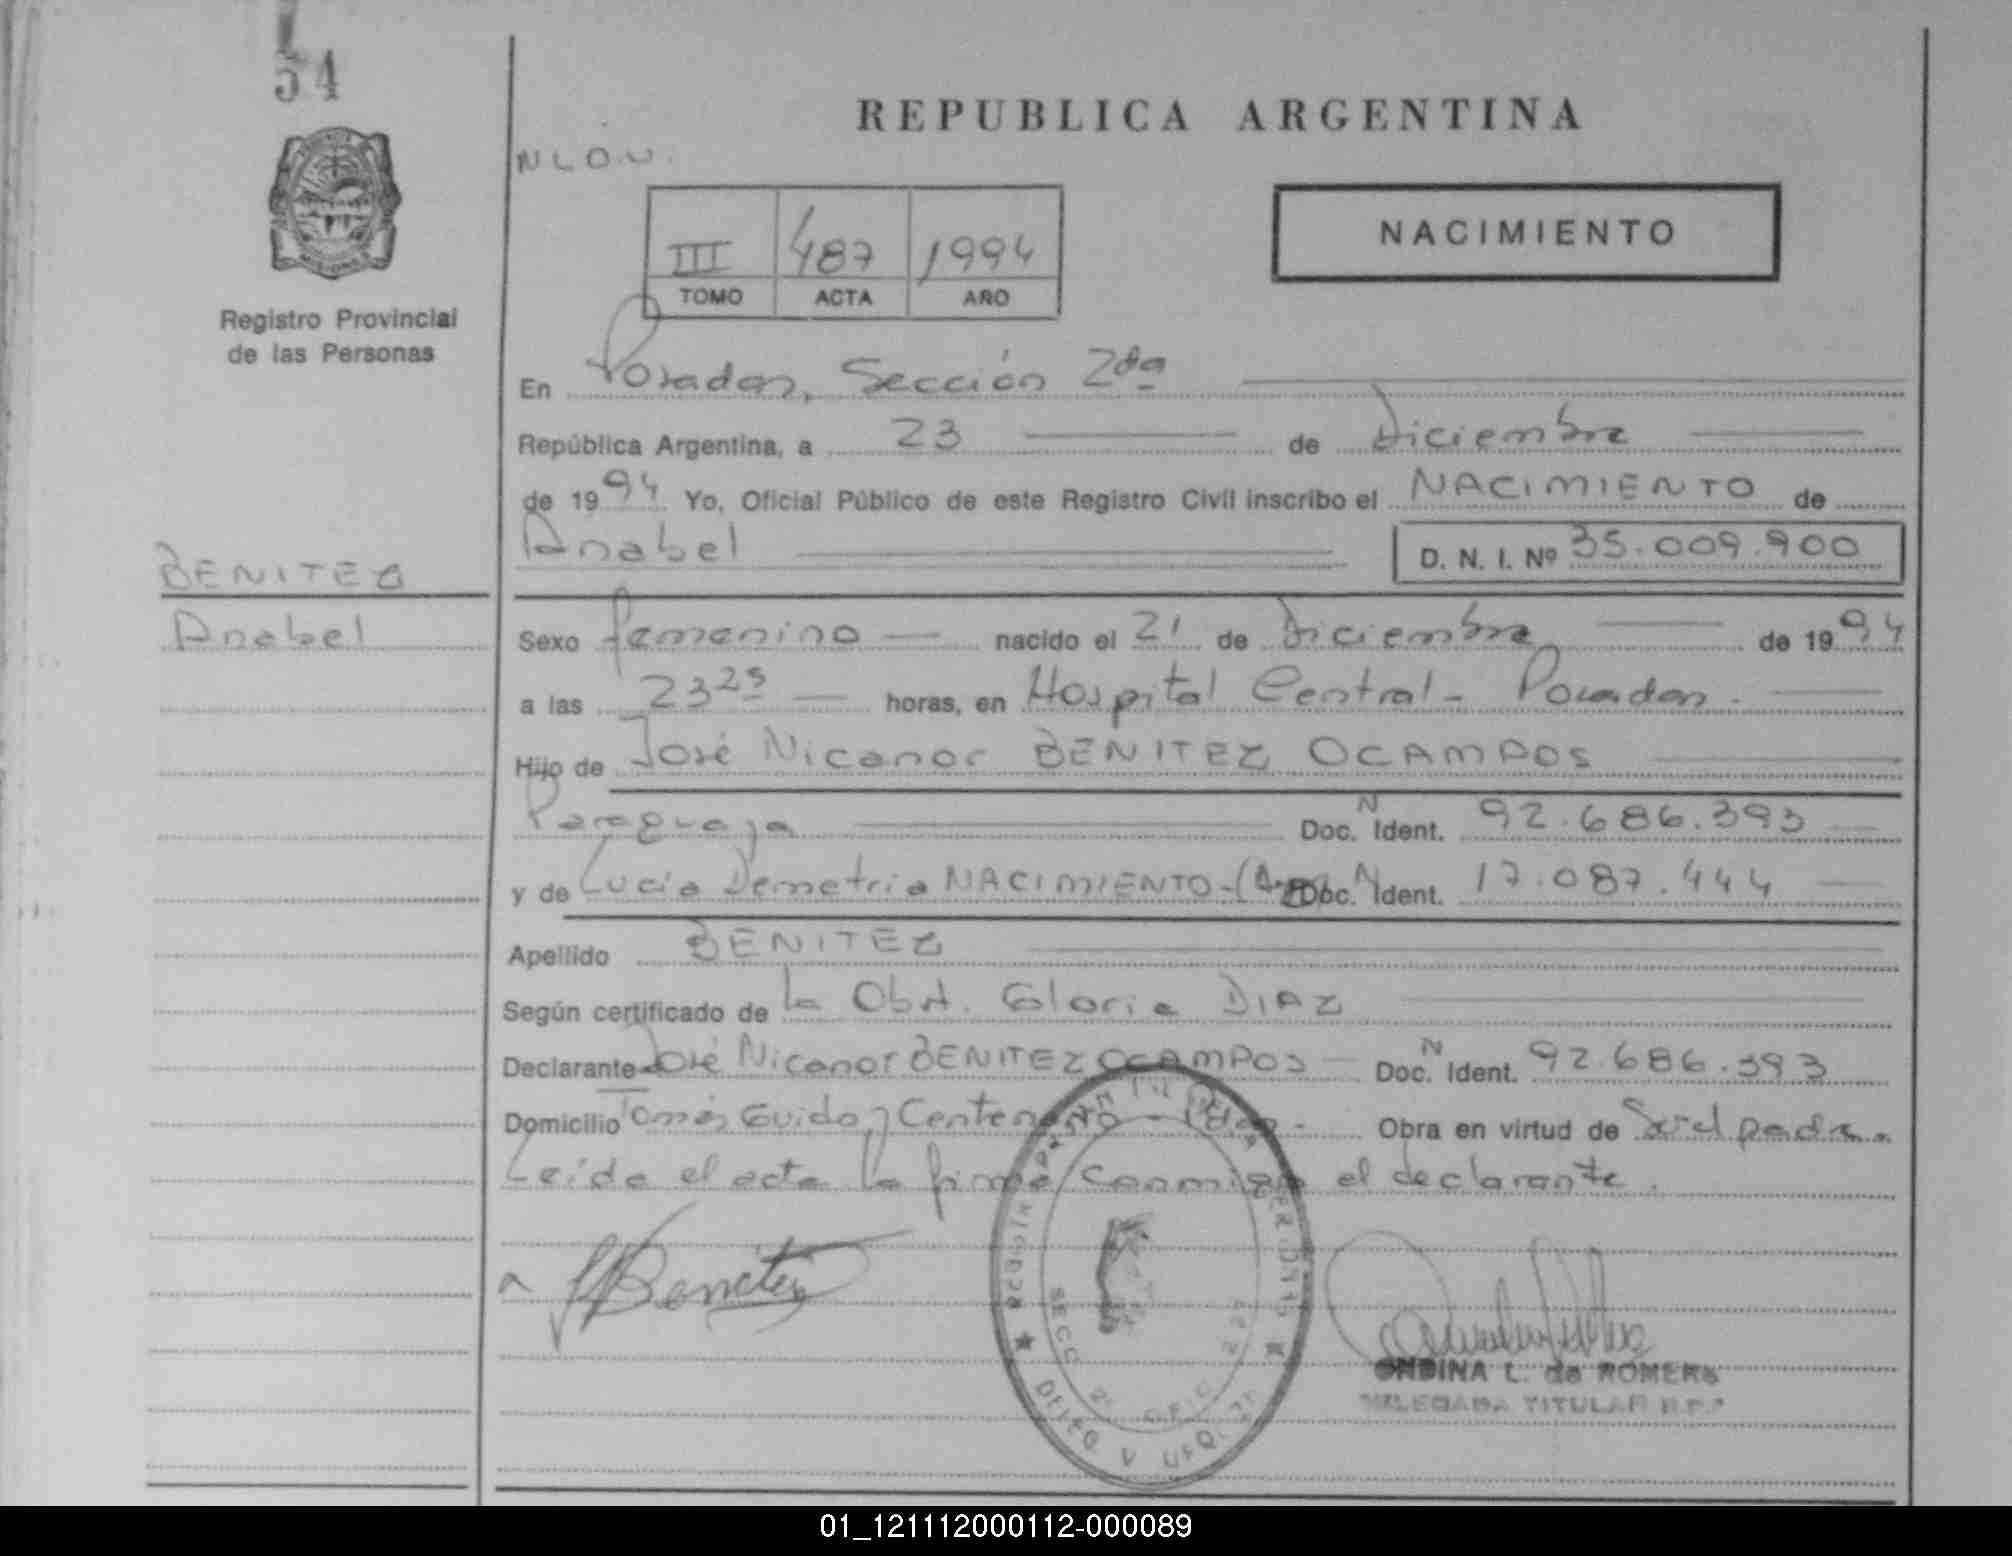 54
REPUBLICA ARGENTINA
NACIMIENTO
III 487 1994
TOMO ACTA AÑO
Registro Provincial
de las Personas
En Posadas, Sección 2da
República Argentina, a 23 de Diciembre
de 1994 Yo, Oficial Público de este Registro Civil inscribo el NACIMIENTO de
Anabel D. N. I. Nº 35.009.900
BENITEZ
Anabel
Sexo femenino nacido el 21 de Diciembre de 1994
a las 23 25 horas, en Hospital Central - Posadas.
Hijo de José Nicanor BENITEZ OCAMPOS
Paraguaya Doc. N Ident. 92.686.393
y de Lucia Demetria NACIMIENTO - Doc. N Ident. 17.087.444
Apellido BENITEZ
Según certificado de la Obst. Gloria DIAZ
Declarante José Nicanor BENITEZ OCAMPOS Doc. N Ident. 92.686.393
Domicilio Tomás Guido y Centenario - Pdas. Obra en virtud de Ser el padre.
Leída el acta la firma conmigo el declarante.
Benitez
SECC 2ª
ONDINA L. de ROMERO
DELEGADA TITULAR R.P.P
01_121112000112-000089